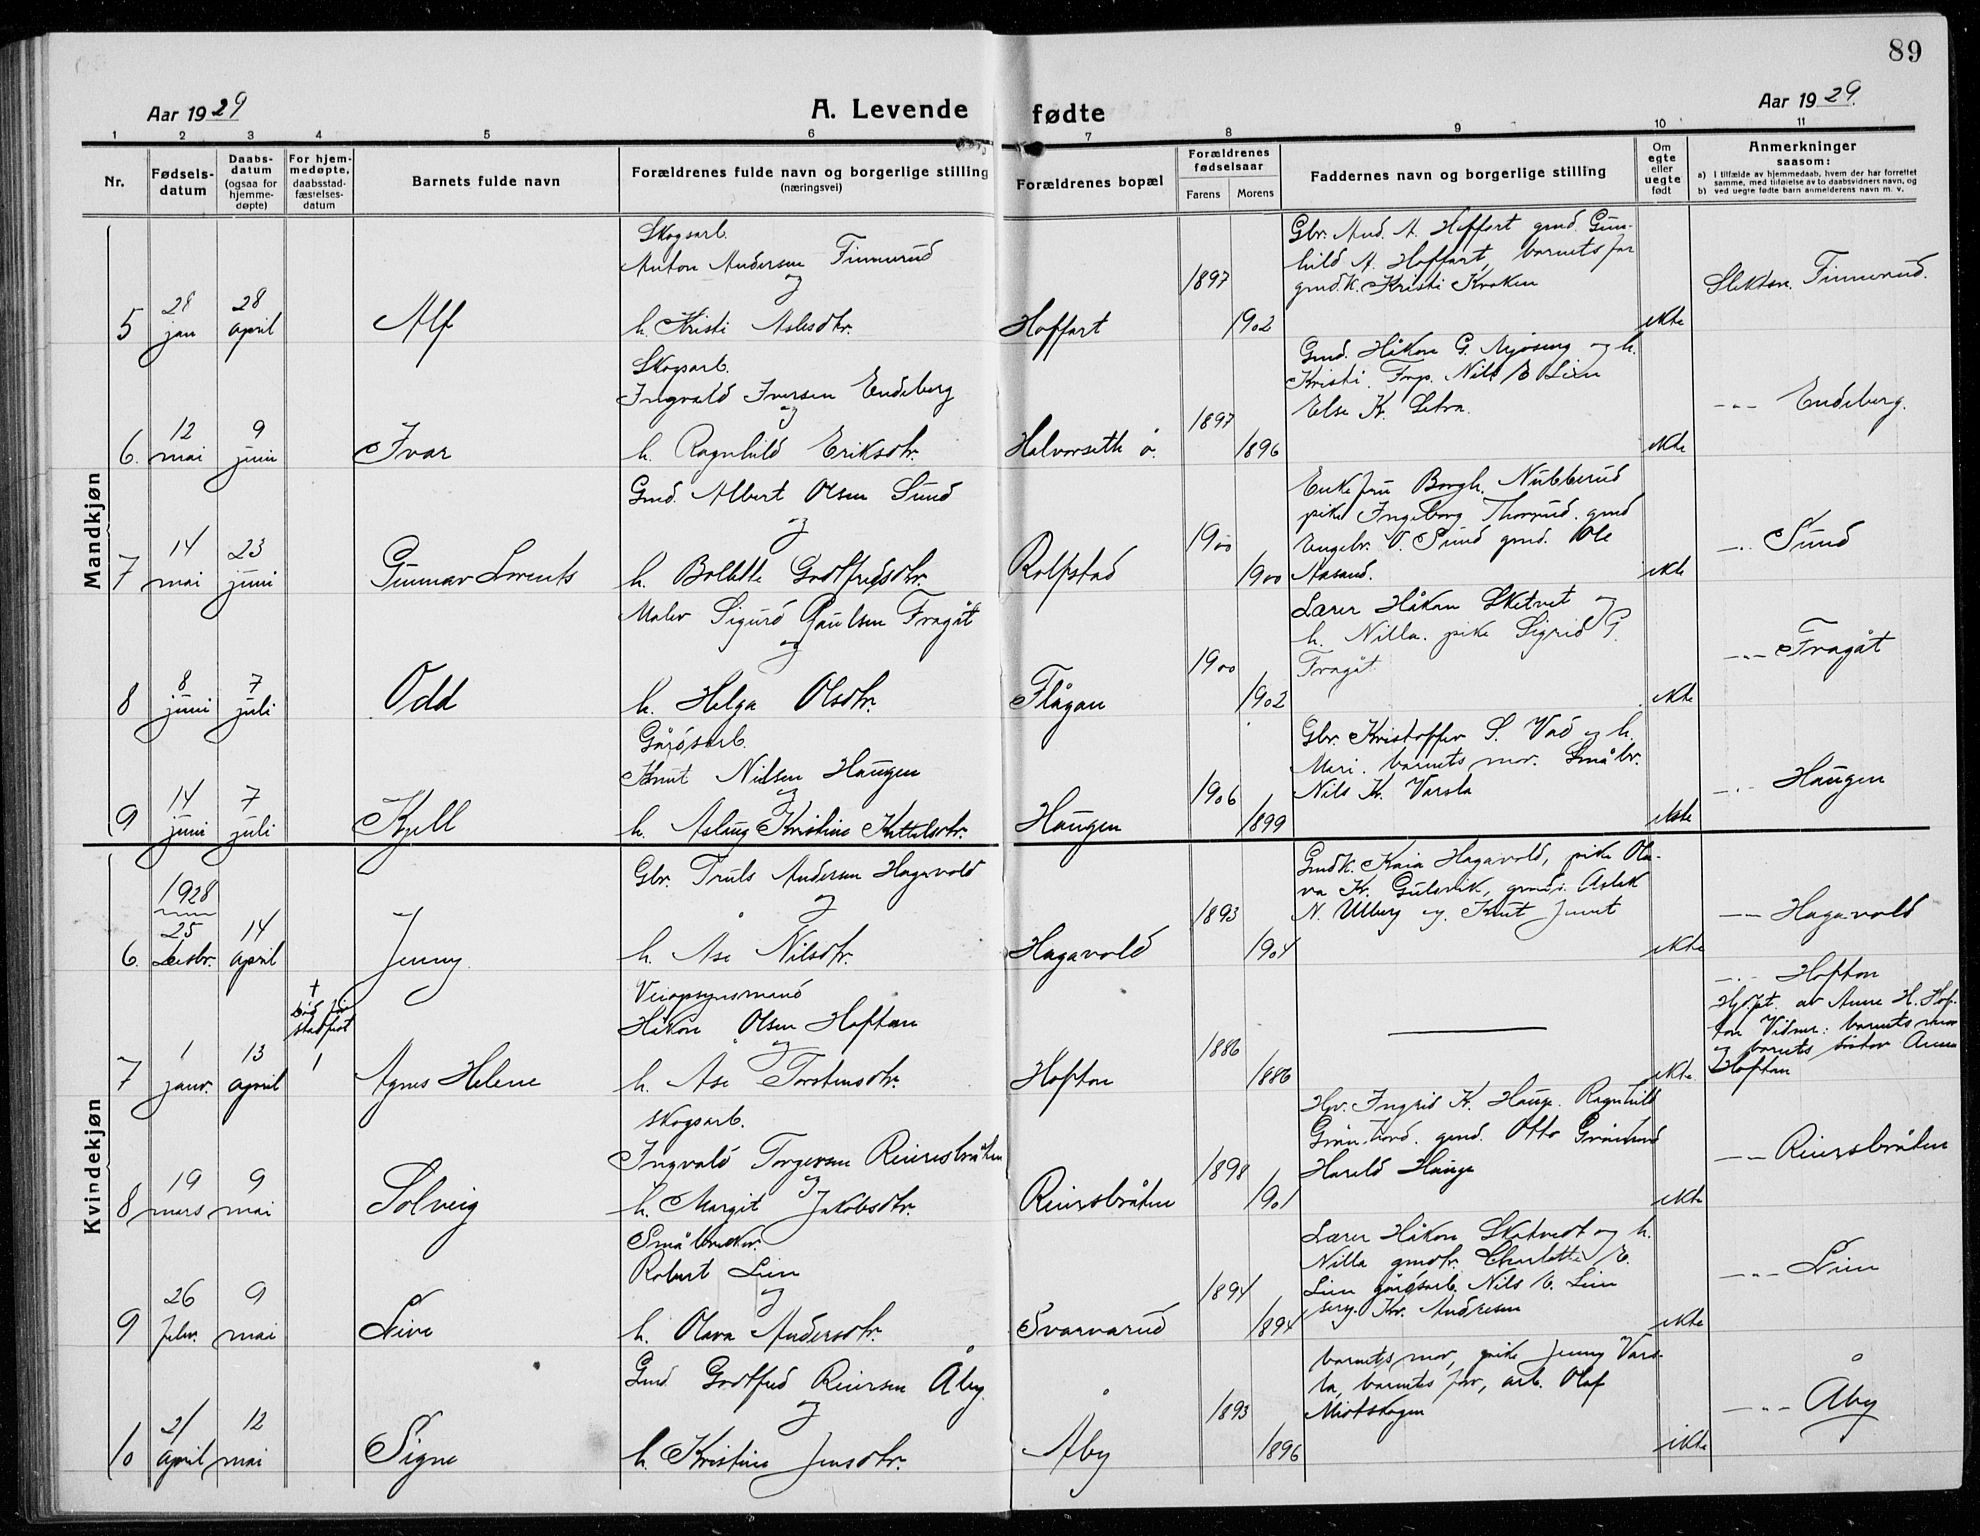 89
Aar 1929
A. Levende fødte
Aar 1929.
1 2 3 4 5 6 7 8 9 10 11
Nr.
Fødsels-
datum
Daabs-
datum
(ogsaa for
hjemme-
døpte)
For hjem-
medøpte,
daabsstad-
fæstelses-
datum
Barnets fulde navn
Forældrenes fulde navn og borgerlige stilling
(næringsvei)
Forældrenes bopæl
Forældrenes
fødselsaar
Farens Morens
Faddernes navn og borgerlige stilling
Om
egte
eller
uegte
født
Anmerkninger
saasom:
a) I tilfælde av hjemmedaab, hvem der har forrettet
samme, med tilføielse av to daabsvidners navn, og
b) ved uegte fødte barn anmelderens navn m. v.
Mandkjøn
5
28
jan
28
april
Alf
Skogsarb.
Anton Andersen Finnerud
og
h. Kristi Aslesdtr.
Hoffart
1897
1902
Gbr. And. A. Hoffart gmd. Gun-
hild A. Hoffart, barnets far
gmdk. Kristi Kroken
ekte
Slektsn. Finnerud.
6.
12
mai
9
juni
Ivar
Skogsarb.
Ingvald Iversen Endeberg
og
h. Ragnhild Eriksdtr.
Halvorseth ø.
1897
1896
Gmd. Håkon G. Mjøseng og h.
Kristi. Forp. Nils E Lien
Else K.
ekte
-"- Endeberg.
7
14
mai
23
juni
Gunnar Lorents
Gmd. Albert Olsen Sund
og
h. Bolette Godtfredsdtr.
Rolfstad
1900
1900
Enkefru Borgh. Nubberud
pike Ingeborg Thorrud. gmd
Engebr. O. Sund gmd. Ole
Aasand.
ekte
-"- Sund
8
8
juni
7
juli
Odd
Maler Sigurd Paulsen Fragåt
og
h. Helga Olsdtr.
Flågan
1900
1902
Lærer Håkon Sketvet og
h. Nilla. pike Sigrid P.
Fragåt
ekte
-"- Fragåt
9
14
juni
7
juli
Kjell
Gårdsarb.
Knut Nilsen Haugen
og
h. Aslaug Kristine Kittelsdtr.
Haugen
1906
1899
Gbr. Kristoffer S. Vad og h.
Mari. barnets mor. Småbr.
Nils K. Varsla
ekte
-"- Haugen
Kvindekjøn
6.
1928
25
desbr.
14
april
Jenny
Gbr. Truls Andersen Hagavold
og
h. Åse Nilsdtr.
Hagavold
1893
1904
Gmdk. Kaia Hagavold, pike Ola-
va K. Gulsvik, gmds. Aslak
N. Ulberg og Knut Junet
ekte
-"- Hagavold
7
1
janr.
13
april
†
død før
stadfest
Agnes Helene
Veiopsynsmand
Håkon Olsen Hofton
og
h. Åse Torstensdtr.
Hofton
1886
1886
ekte
-"- Hofton
Hjdpt. av Anne H. Hof-
ton Vidner: barnets mor
og barnets søster Anna
Hofton
8
19
mars
9
mai
Solveig
skogsarb.
Ingvald Torgersen Reiersbråten
og
h. Margit Jakobsdtr.
Reiersbråten
1898
1901
Hv. Ingrid K. Hauge. Ragnhild
Grønlund. gmd. Otto Grønlund
Harald Hauge
ekte
-"- Reiersbråten
9
26
febr.
9
mai
Live
Småbruker.
Robert Lien
og
h. Olava Andersdtr.
Svarvarud
1894
1894
Lærer Håkon Sketvedt og h.
Nilla gmdtr. Charlotte E.
Lien gårdsarb. Nils E. Lien
serg. Kr. Andresen
ekte
-"- Lien
10
21
april
12
mai
Signe
Gmd. Godtfred Reiersen Åby.
og
h. Kristine Jensdtr.
Åby
1893
1896
barnets mor, pike Jenny Vars-
la, barnets far, arb. Olaf
Midtskogen
ekte
-"- Åby